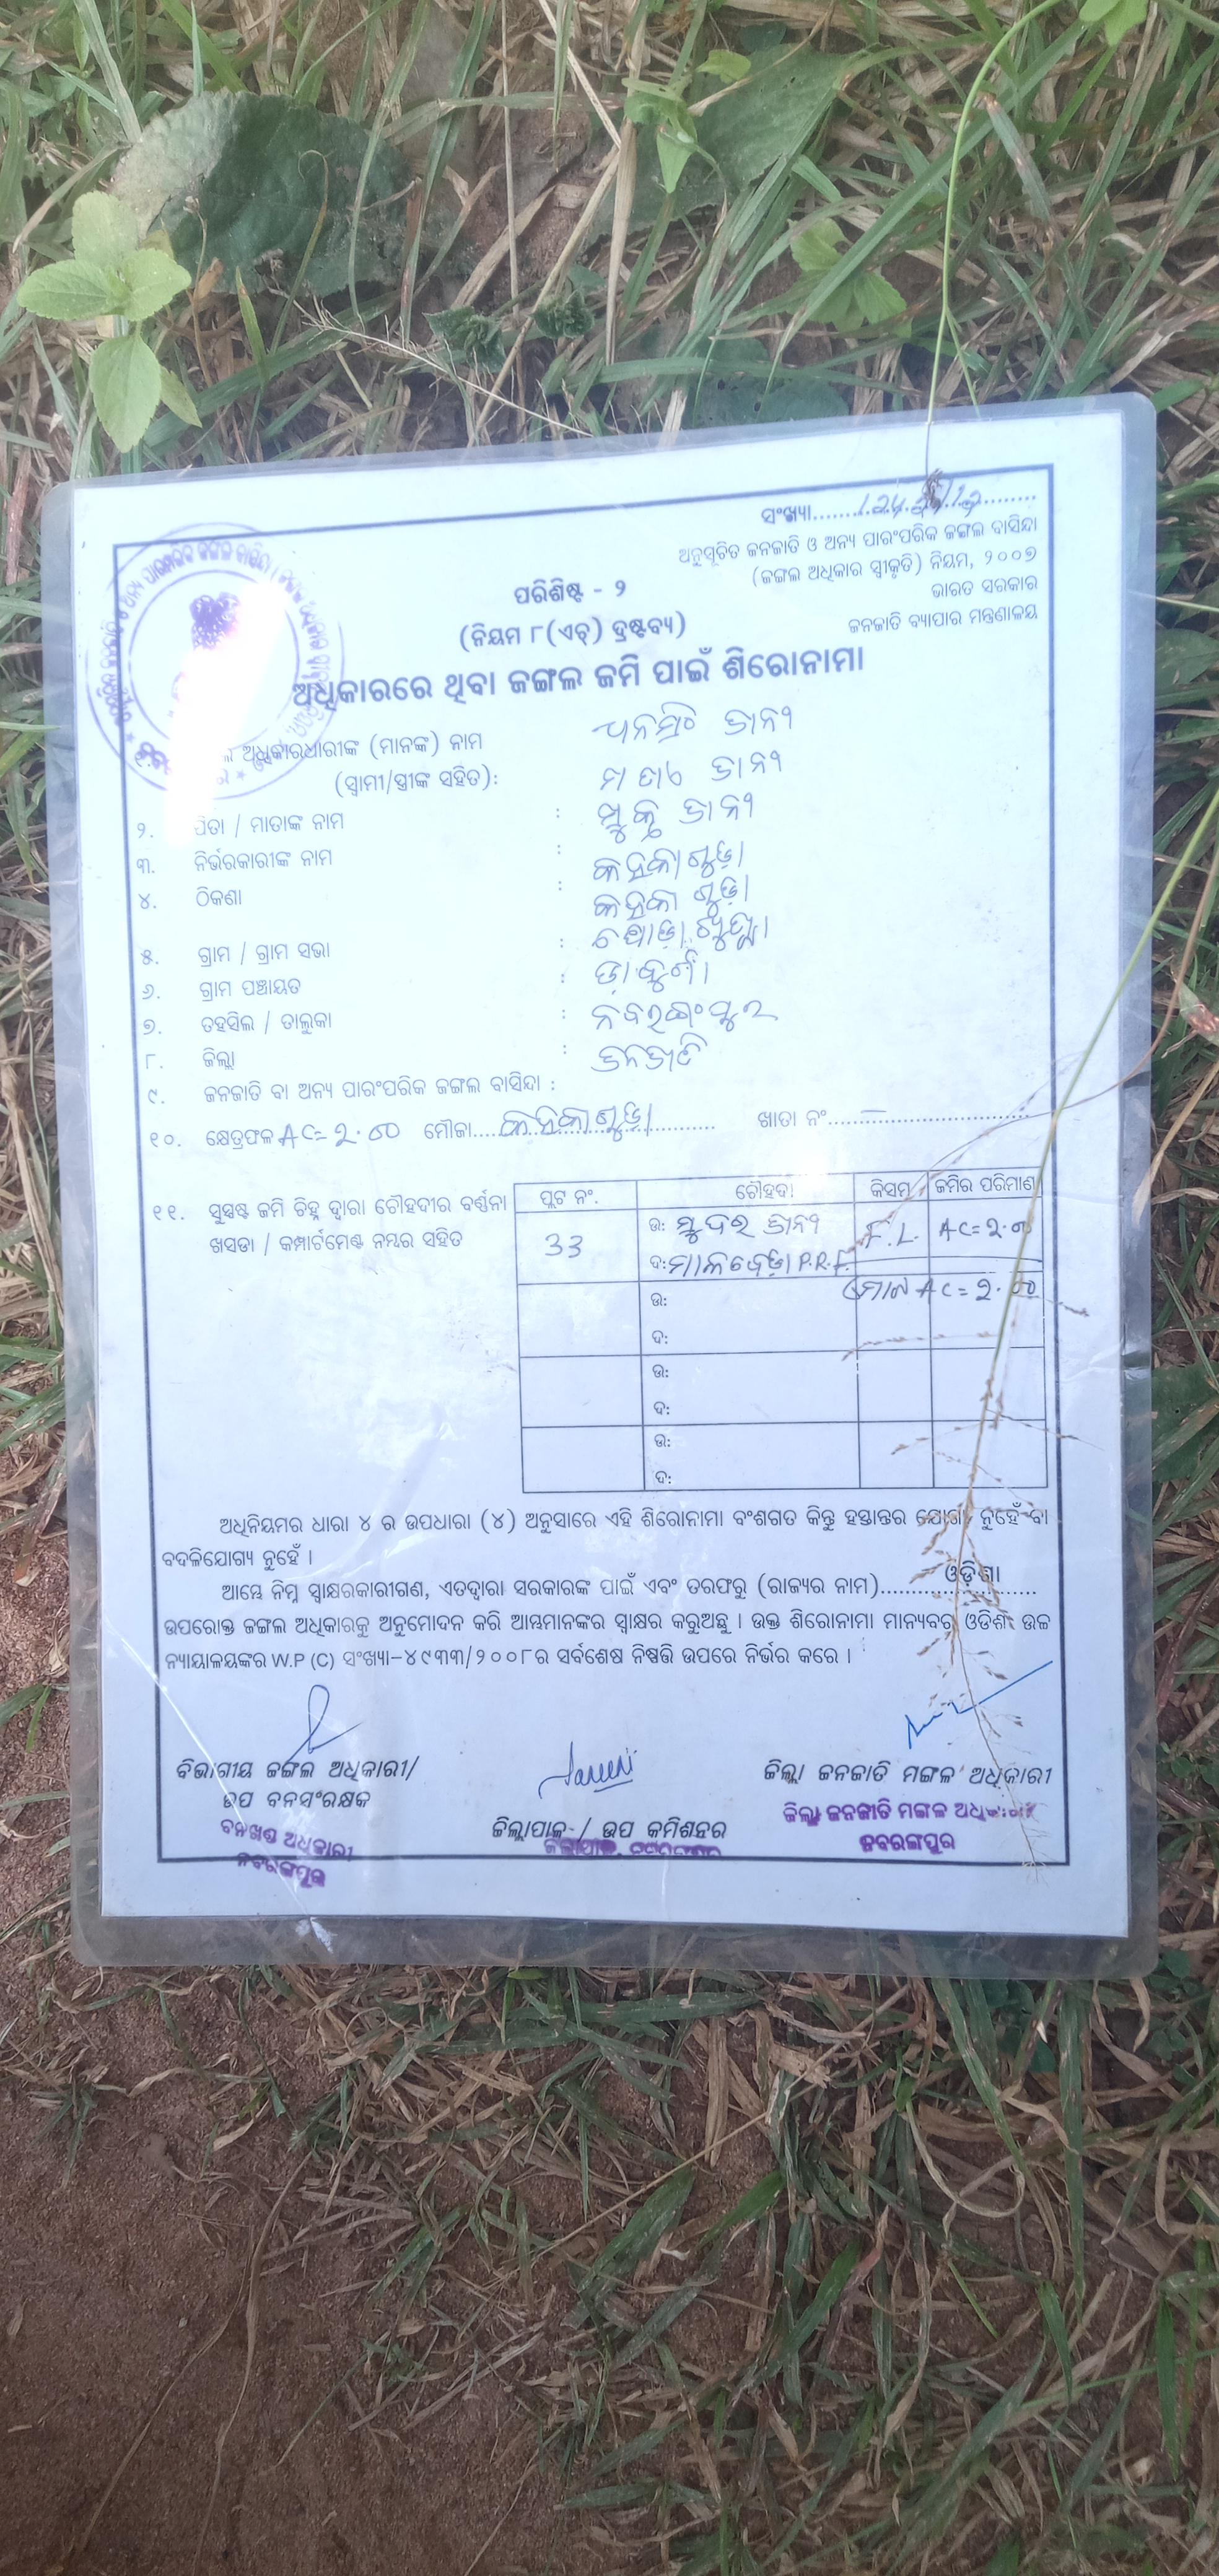 ସଂଖ୍ୟା
ଅନୁସୂଚିତ ଜନଜାତି ଓ ଅନ୍ୟ ପାରଂପରିକ ଜଙ୍ଗଲ ବାସିନ୍ଦା
(ଜଙ୍ଗଲ ଅଧିକାର ସ୍ୱୀକୃତି) ନିୟମ, ୨୦୦୭
ଭାରତ ସରକାର
ଜନଜାତି ବ୍ୟାପାର ମନ୍ତ୍ରଣାଳୟ
ପରିଶିଷ୍ଟ - ୨
(ନିୟମ ୮(ଏଚ୍) ଦ୍ରଷ୍ଟବ୍ୟ)
ଅଧିକାରରେ ଥିବା ଜଙ୍ଗଲ ଜମି ପାଇଁ ଶିରୋନାମା
୧. ଅଧିକାରଧାରୀଙ୍କ (ମାନଙ୍କ) ନାମ
(ସ୍ୱାମୀ/ସ୍ତ୍ରୀଙ୍କ ସହିତ):
୨. ପିତା / ମାତାଙ୍କ ନାମ :
୩. ନିର୍ଭରକାରୀଙ୍କ ନାମ :
୪. ଠିକଣା :
୫. ଗ୍ରାମ / ଗ୍ରାମ ସଭା :
୬. ଗ୍ରାମ ପଞ୍ଚାୟତ :
୭. ତହସିଲ / ତାଲୁକା : ଡ଼ାବୁଗାଁ
୮. ଜିଲ୍ଲା : ନବରଙ୍ଗପୁର
୯. ଜନଜାତି ବା ଅନ୍ୟ ପାରଂପରିକ ଜଙ୍ଗଲ ବାସିନ୍ଦା : ଜନଜାତି
୧୦. କ୍ଷେତ୍ରଫଳ AC= 2.00 ମୌଜା ଖାତା ନଂ —
୧୧. ସୁସ୍ପଷ୍ଟ ଜମି ଚିହ୍ନ ଦ୍ୱାରା ଚୌହଦୀର ବର୍ଣ୍ଣନା
ଖସଡା / କମ୍ପାର୍ଟମେଣ୍ଟ ନମ୍ବର ସହିତ
ପ୍ଲଟ ନଂ. ଚୌହଦୀ କିସମ ଜମିର ପରିମାଣ
33 ଉ: F.L. AC=2.00
ଦ: P.R.F.
ଉ: ମୋଟ AC=2.00
ଦ:
ଉ:
ଦ:
ଉ:
ଦ:
ଅଧିନିୟମର ଧାରା ୪ ର ଉପଧାରା (୪) ଅନୁସାରେ ଏହି ଶିରୋନାମା ବଂଶଗତ କିନ୍ତୁ ହସ୍ତାନ୍ତର ଯୋଗ୍ୟ ନୁହେଁ ବା
ବଦଳିଯୋଗ୍ୟ ନୁହେଁ ।
ଆମ୍ଭେ ନିମ୍ନ ସ୍ୱାକ୍ଷରକାରୀଗଣ, ଏତଦ୍ୱାରା ସରକାରଙ୍କ ପାଇଁ ଏବଂ ତରଫରୁ (ରାଜ୍ୟର ନାମ) ଓଡ଼ିଶା
ଉପରୋକ୍ତ ଜଙ୍ଗଲ ଅଧିକାରକୁ ଅନୁମୋଦନ କରି ଆମ୍ଭମାନଙ୍କର ସ୍ୱାକ୍ଷର କରୁଅଛୁ । ଉକ୍ତ ଶିରୋନାମା ମାନ୍ୟବର ଓଡିଶା ଉଚ୍ଚ
ନ୍ୟାୟାଳୟଙ୍କର W.P (C) ସଂଖ୍ୟା-୪୯୩୩/୨୦୦୮ର ସର୍ବଶେଷ ନିଷ୍ପତ୍ତି ଉପରେ ନିର୍ଭର କରେ ।
ବିଭାଗୀୟ ଜଙ୍ଗଲ ଅଧିକାରୀ/
ଉପ ବନସଂରକ୍ଷକ
ବନଖଣ୍ଡ ଅଧିକାରୀ
ନବରଙ୍ଗପୁର
ଜିଲ୍ଲାପାଳ / ଉପ କମିଶନର
ଜିଲ୍ଲା ଜନଜାତି ମଙ୍ଗଳ ଅଧିକାରୀ
ଜିଲ୍ଲା ଜନଜାତି ମଙ୍ଗଳ ଅଧିକାରୀ
ନବରଙ୍ଗପୁର